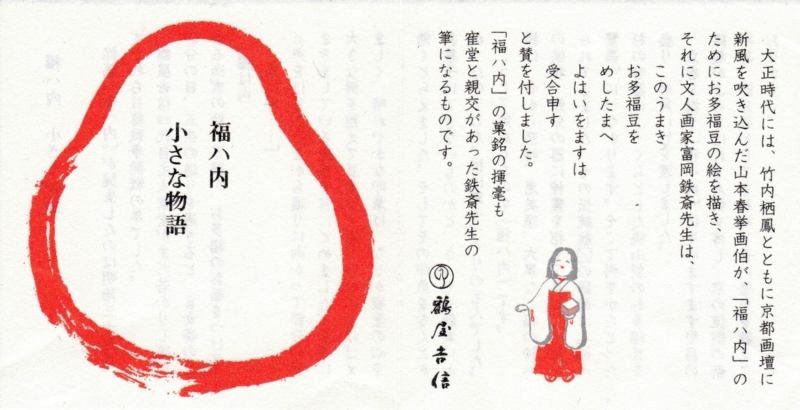 大正時代には、竹内栖鳳とともに京都画壇に
新風を吹き込んだ山本春挙画伯が、「福ハ内」の
ためにお多福豆の絵を描き、
それに文人画家富岡鉄斎先生は、
このうまき
お多福豆を
めしたまへ
よはいをますは
受合申す
と賛を付しました。
「福ハ内」の菓銘の揮毫も
寉堂と親交があった鉄斎先生の
筆になるものです。
鶴屋吉信
福ハ内
小さな物語